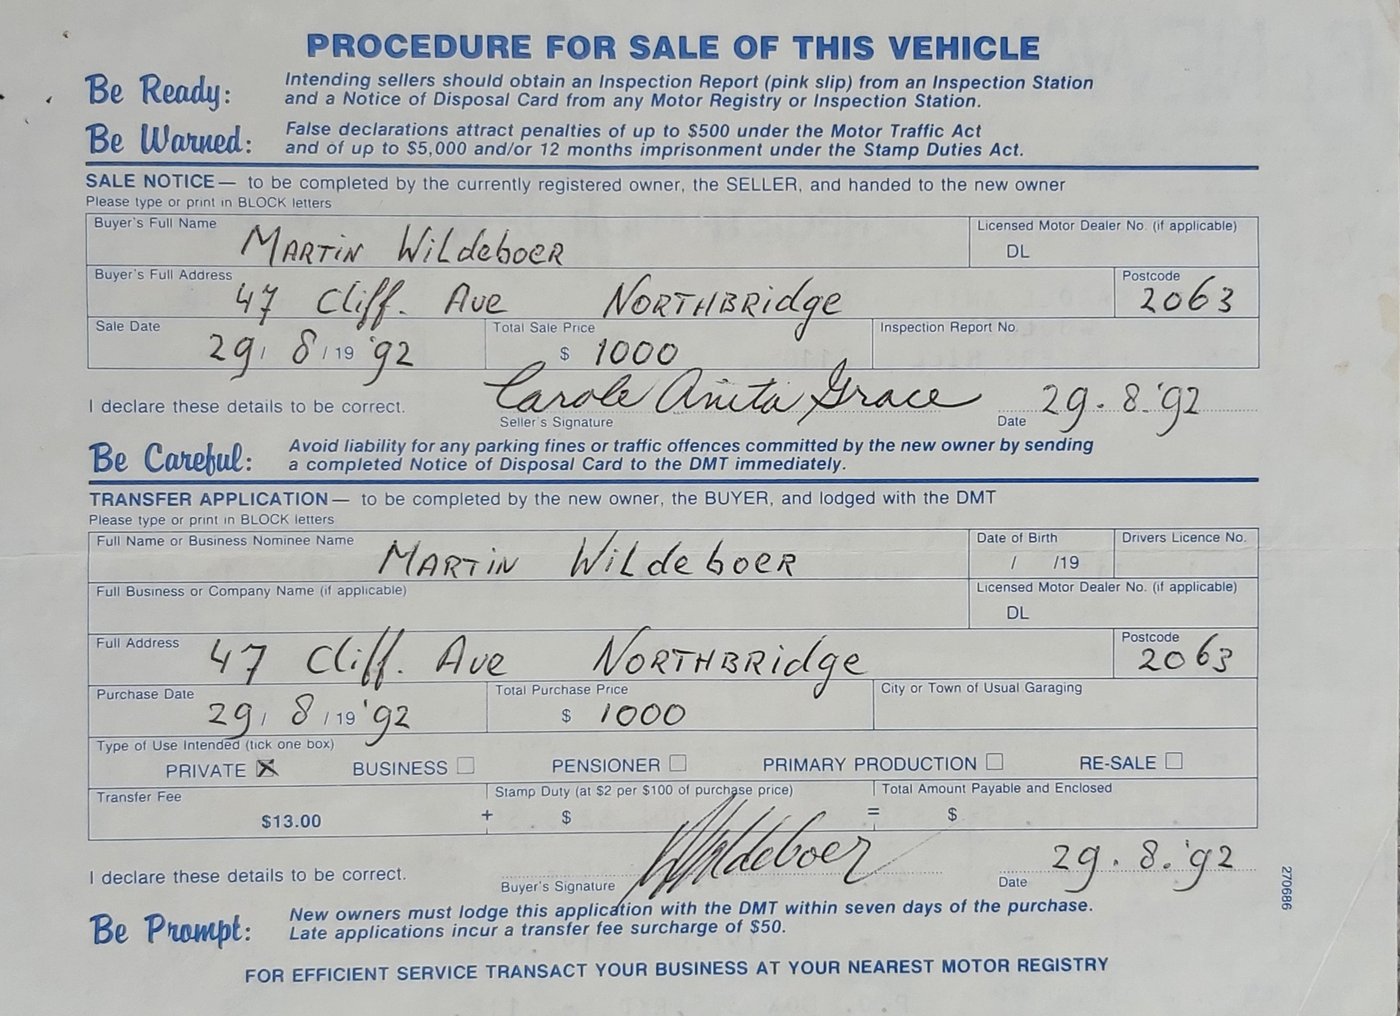 PROCEDURE FOR SALE OF THIS VEHICLE
Be Ready: Intending sellers should obtain an Inspection Report (pink slip) from an Inspection Station
and a Notice of Disposal Card from any Motor Registry or Inspection Station.
Be Warned: False declarations attract penalties of up to $500 under the Motor Traffic Act
and of up to $5,000 and/or 12 months imprisonment under the Stamp Duties Act.
SALE NOTICE— to be completed by the currently registered owner, the SELLER, and handed to the new owner
Please type or print in BLOCK letters
Buyer's Full Name Licensed Motor Dealer No. (if applicable)
MARTiN WiLdeboeR DL
Buyer's Full Address Postcode
47 Cliff. Ave NORTHBRidge 2063
Sale Date Total Sale Price Inspection Report No.
29/ 8/19 '92 $ 1000
I declare these details to be correct. Carole Anita Grace 29.8.'92
Seller's Signature Date
Be Careful: Avoid liability for any parking fines or traffic offences committed by the new owner by sending
a completed Notice of Disposal Card to the DMT immediately.
TRANSFER APPLICATION— to be completed by the new owner, the BUYER, and lodged with the DMT
Please type or print in BLOCK letters
Full Name or Business Nominee Name Date of Birth Drivers Licence No.
MARTiN WiLdeboeR / /19
Full Business or Company Name (if applicable) Licensed Motor Dealer No. (if applicable)
DL
Full Address Postcode
47 Cliff. Ave NORTHBRidge 2063
Purchase Date Total Purchase Price City or Town of Usual Garaging
29/ 8/19 '92 $ 1000
Type of Use Intended (tick one box)
PRIVATE ☒ BUSINESS ☐ PENSIONER ☐ PRIMARY PRODUCTION ☐ RE-SALE ☐
Transfer Fee Stamp Duty (at $2 per $100 of purchase price) Total Amount Payable and Enclosed
$13.00 + $ = $
I declare these details to be correct. Wildeboer 29.8.'92
Buyer's Signature Date
270686
Be Prompt: New owners must lodge this application with the DMT within seven days of the purchase.
Late applications incur a transfer fee surcharge of $50.
FOR EFFICIENT SERVICE TRANSACT YOUR BUSINESS AT YOUR NEAREST MOTOR REGISTRY